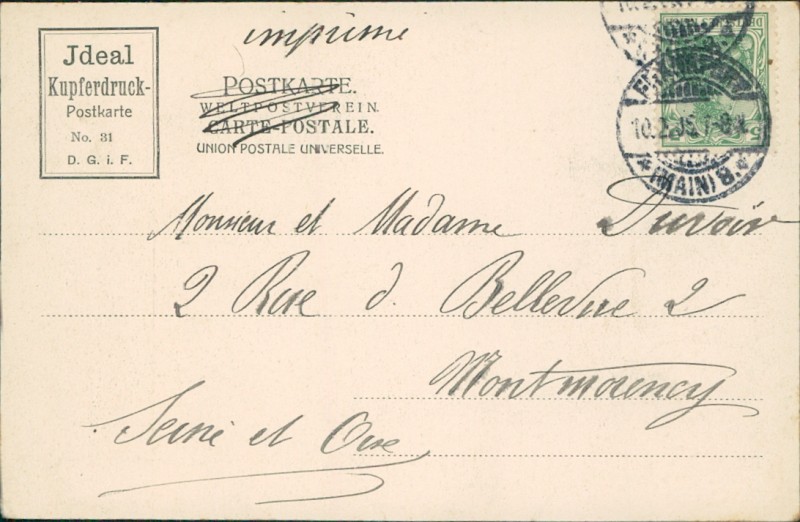 imprime
Jdeal
Kupferdruck-
Postkarte
No. 31
D. G. i. F.
POSTKARTE.
WELTPOSTVEREIN.
CARTE-POSTALE.
UNION POSTALE UNIVERSELLE.
FRANKFURT
10.2.05. 7-8 V.
* (MAIN) 8. *
5
Monsieur et Madame Duvoir
2 Rue d. Bellevue 2
Montmorency
Seine et Oise